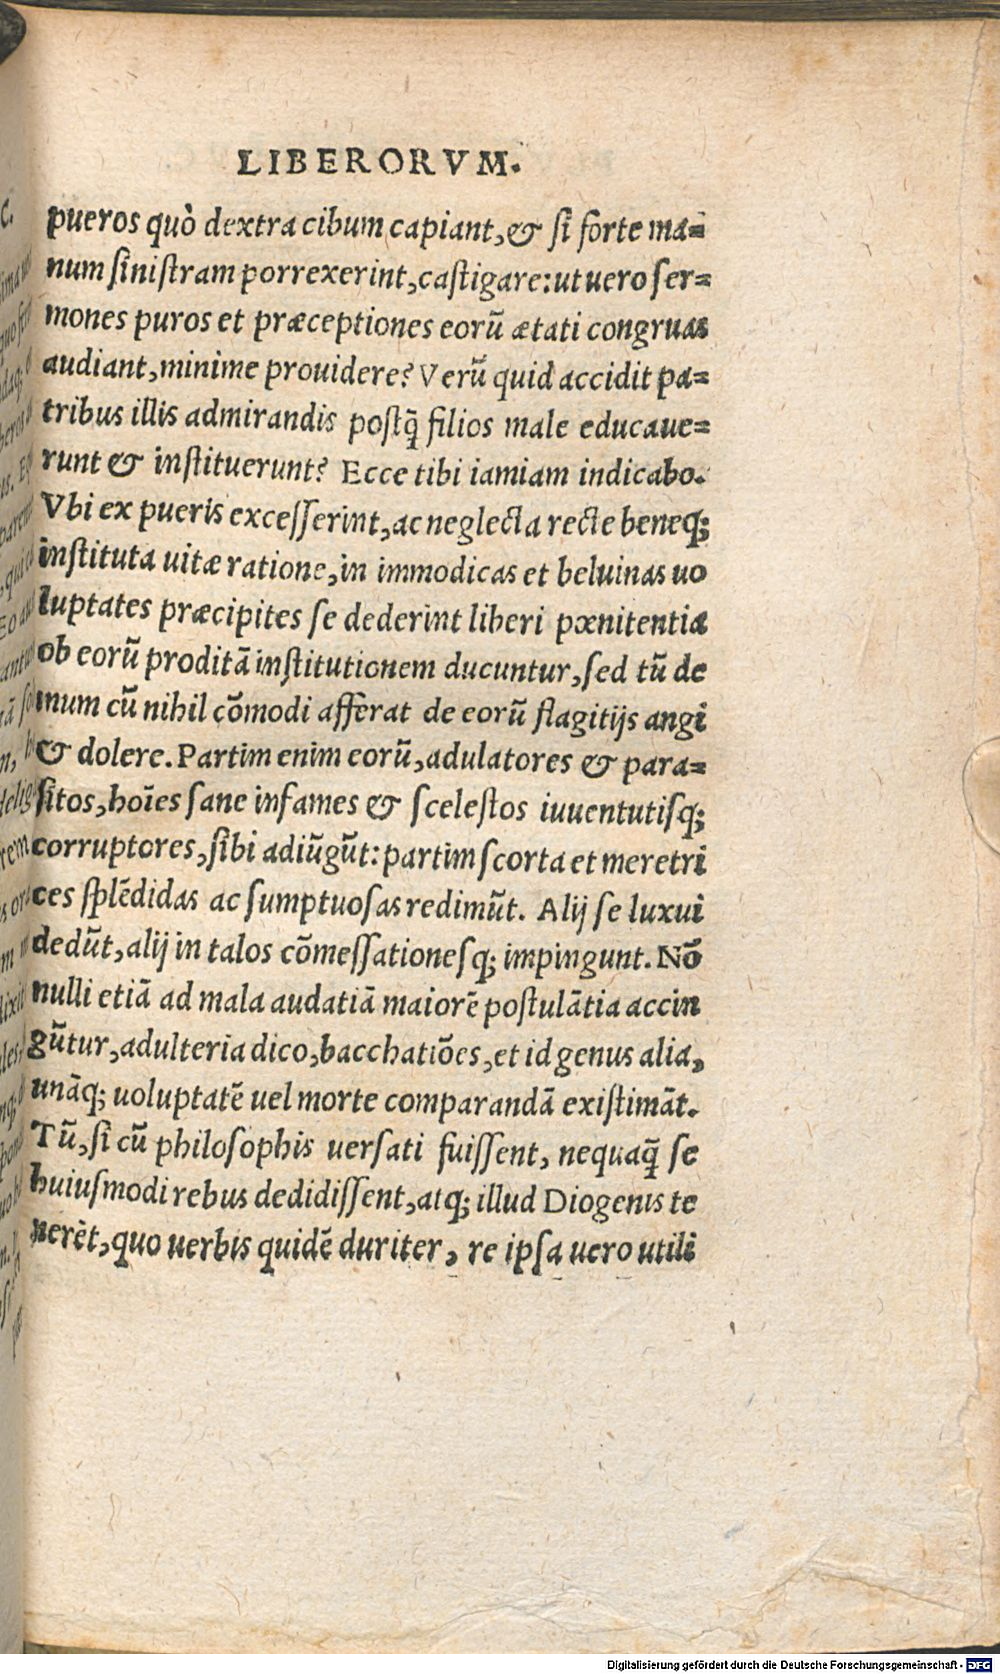 LIBERORVM.
pueros quò dextra cibum capiant, & si forte ma=
num sinistram porrexerint, castigare: ut uero ser=
mones puros et præceptiones eorũ ætati congruas
audiant, minime prouidere? Verũ quid accidit pa=
tribus illis admirandis postq̃ filios male educaue=
runt & instituerunt? Ecce tibi iamiam indicabo.
Vbi ex pueris excesserint, ac neglecta recte beneq;
instituta uitæ ratione, in immodicas et beluinas uo
luptates præcipites se dederint liberi pœnitentia
ob eorũ proditã institutionem ducuntur, sed tũ de
mum cũ nihil cõmodi afferat de eorũ flagitijs angi
& dolere. Partim enim eorũ, adulatores & para=
sitos, hoĩes sane infames & scelestos iuuentutisq;
corruptores, sibi adiũgũt: partim scorta et meretri
ces splẽdidas ac sumptuosas redimũt. Alij se luxui
dedũt, alij in talos cõmessationesq; impingunt. Nõ
nulli etiã ad mala audatiã maiorẽ postulãtia accin
gũtur, adulteria dico, bacchatiões, et id genus alia,
unãq; uoluptatẽ uel morte comparandã existimãt.
Tũ, si cũ philosophis uersati fuissent, nequaq̃ se
huiusmodi rebus dedidissent, atq; illud Diogenis te
nerẽt, quo uerbis quidẽ duriter, re ipsa uero utili
Digitalisierung gefördert durch die Deutsche Forschungsgemeinschaft - DFG